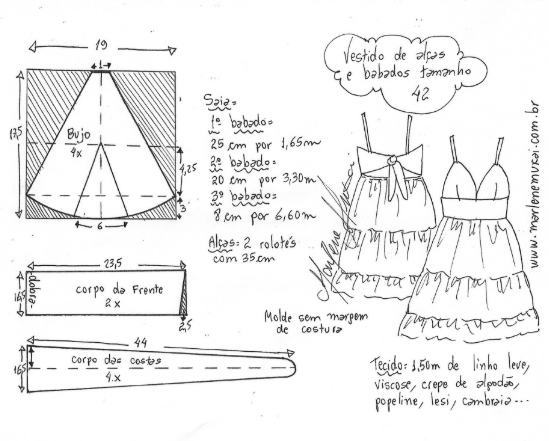 19
1
17,5
Bujo
4x
4,25
3
6
Saia=
1º babado=
25 cm por 1,65m
2º babado=
20 cm por 3,30m
3º babado=
8 cm por 6,60m
Alças: 2 rolotés
com 35cm
Vestido de alças
e babados tamanho
42
Marlene Mukai
www.marlenemukai.com.br
23,5
dobra
16,5
corpo da Frente
2x
2,5
Molde sem margem
de costura
44
16,5
corpo das costas
4x
Tecido: 1,50m de linho leve,
viscose, crepe de algodão,
popeline, lesi, cambraia...